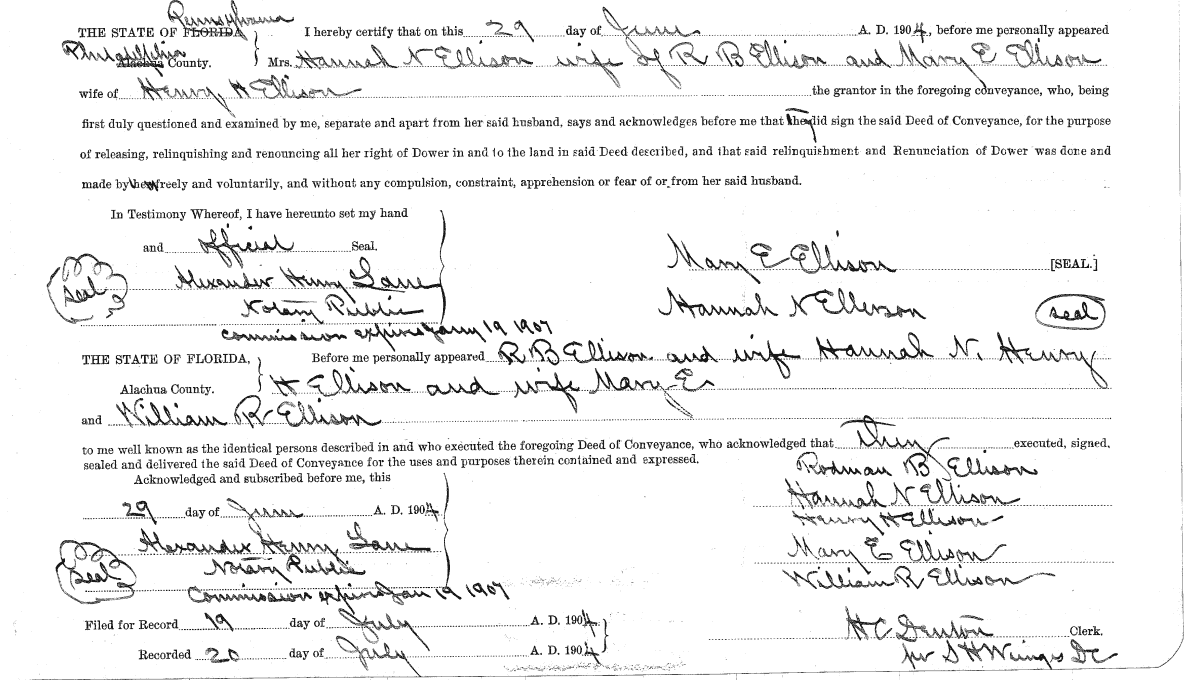 Pennsylvania
THE STATE OF FLORIDA I hereby certify that on this 29 day of June A. D. 1904, before me personally appeared
Philadelphia Alachua County. Mrs. Hannah N Ellison wife of R B Ellison and Mary E Ellison
wife of Henry H Ellison the grantor in the foregoing conveyance, who, being
first duly questioned and examined by me, separate and apart from her said husband, says and acknowledges before me that they did sign the said Deed of Conveyance, for the purpose
of releasing, relinquishing and renouncing all her right of Dower in and to the land in said Deed described, and that said relinquishment and Renunciation of Dower was done and
made by them freely and voluntarily, and without any compulsion, constraint, apprehension or fear of or from her said husband.
In Testimony Whereof, I have hereunto set my hand
and official Seal.
Mary E Ellison [SEAL.]
seal Alexander Henry Lane
Hannah N Ellison seal
Notary Public
Commission expires Jany 19 1907
THE STATE OF FLORIDA, Before me personally appeared R B Ellison and wife Hannah N. Henry
Alachua County. H Ellison and wife Mary E
and William R Ellison
to me well known as the identical persons described in and who executed the foregoing Deed of Conveyance, who acknowledged that they executed, signed,
sealed and delivered the said Deed of Conveyance for the uses and purposes therein contained and expressed.
Rodman B Ellison
Acknowledged and subscribed before me, this
Hannah N Ellison
29 day of June A. D. 1904
Henry H Ellison
Alexander Henry Lane
Mary E Ellison
seal Notary Public
William R Ellison
Commission expires Jan 19 1907
Filed for Record 19 day of July A. D. 1904
H C Denton Clerk.
Recorded 20 day of July A. D. 1904
per S H Wienges DC